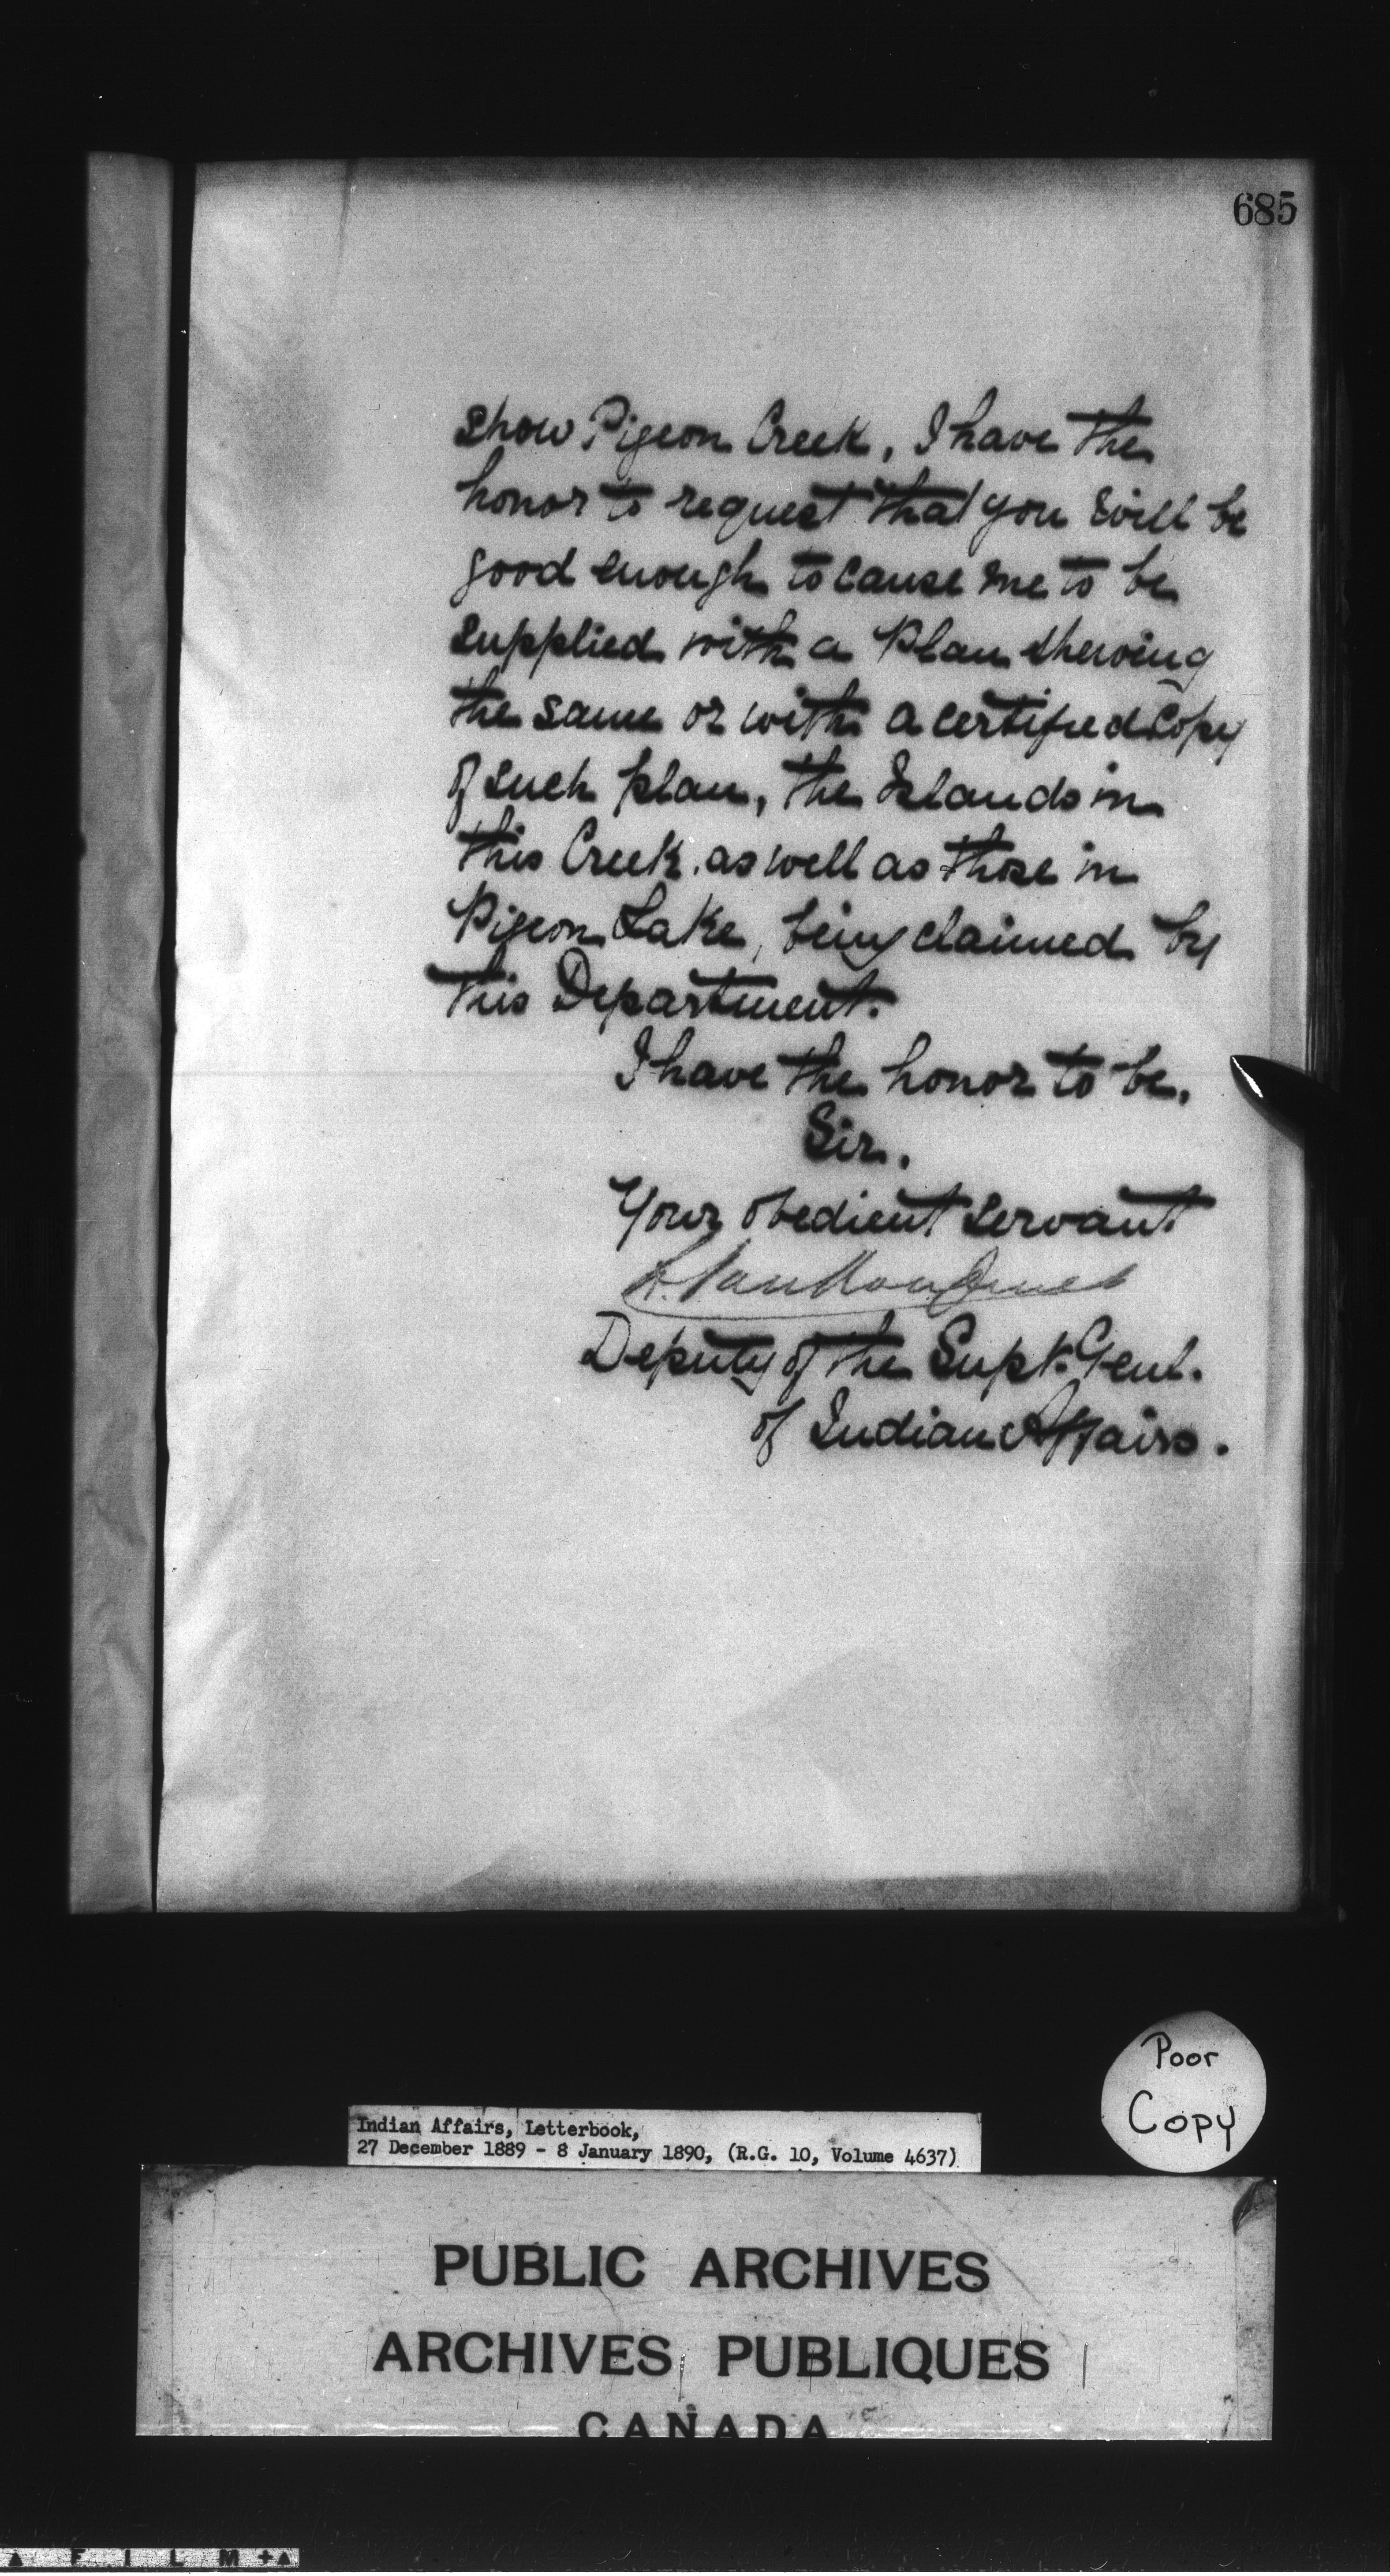 685
show Pigeon Creek, I have the
honor to request that you will be
good enough to cause me to be
supplied with a Plan shewing
the same or with a certified copy
of such plan, the Islands in
this Creek, as well as those in
Pigeon Lake, being claimed by
this Department.
I have the honor to be,
Sir,
Your obedient servant
L. VanKoughnet
Deputy of the Supt. Genl.
of Indian Affairs.
Poor
Copy
Indian Affairs, Letterbook,
27 December 1889 - 8 January 1890, (R.G. 10, Volume 4637)
PUBLIC ARCHIVES
ARCHIVES PUBLIQUES
CANADA
F I L M